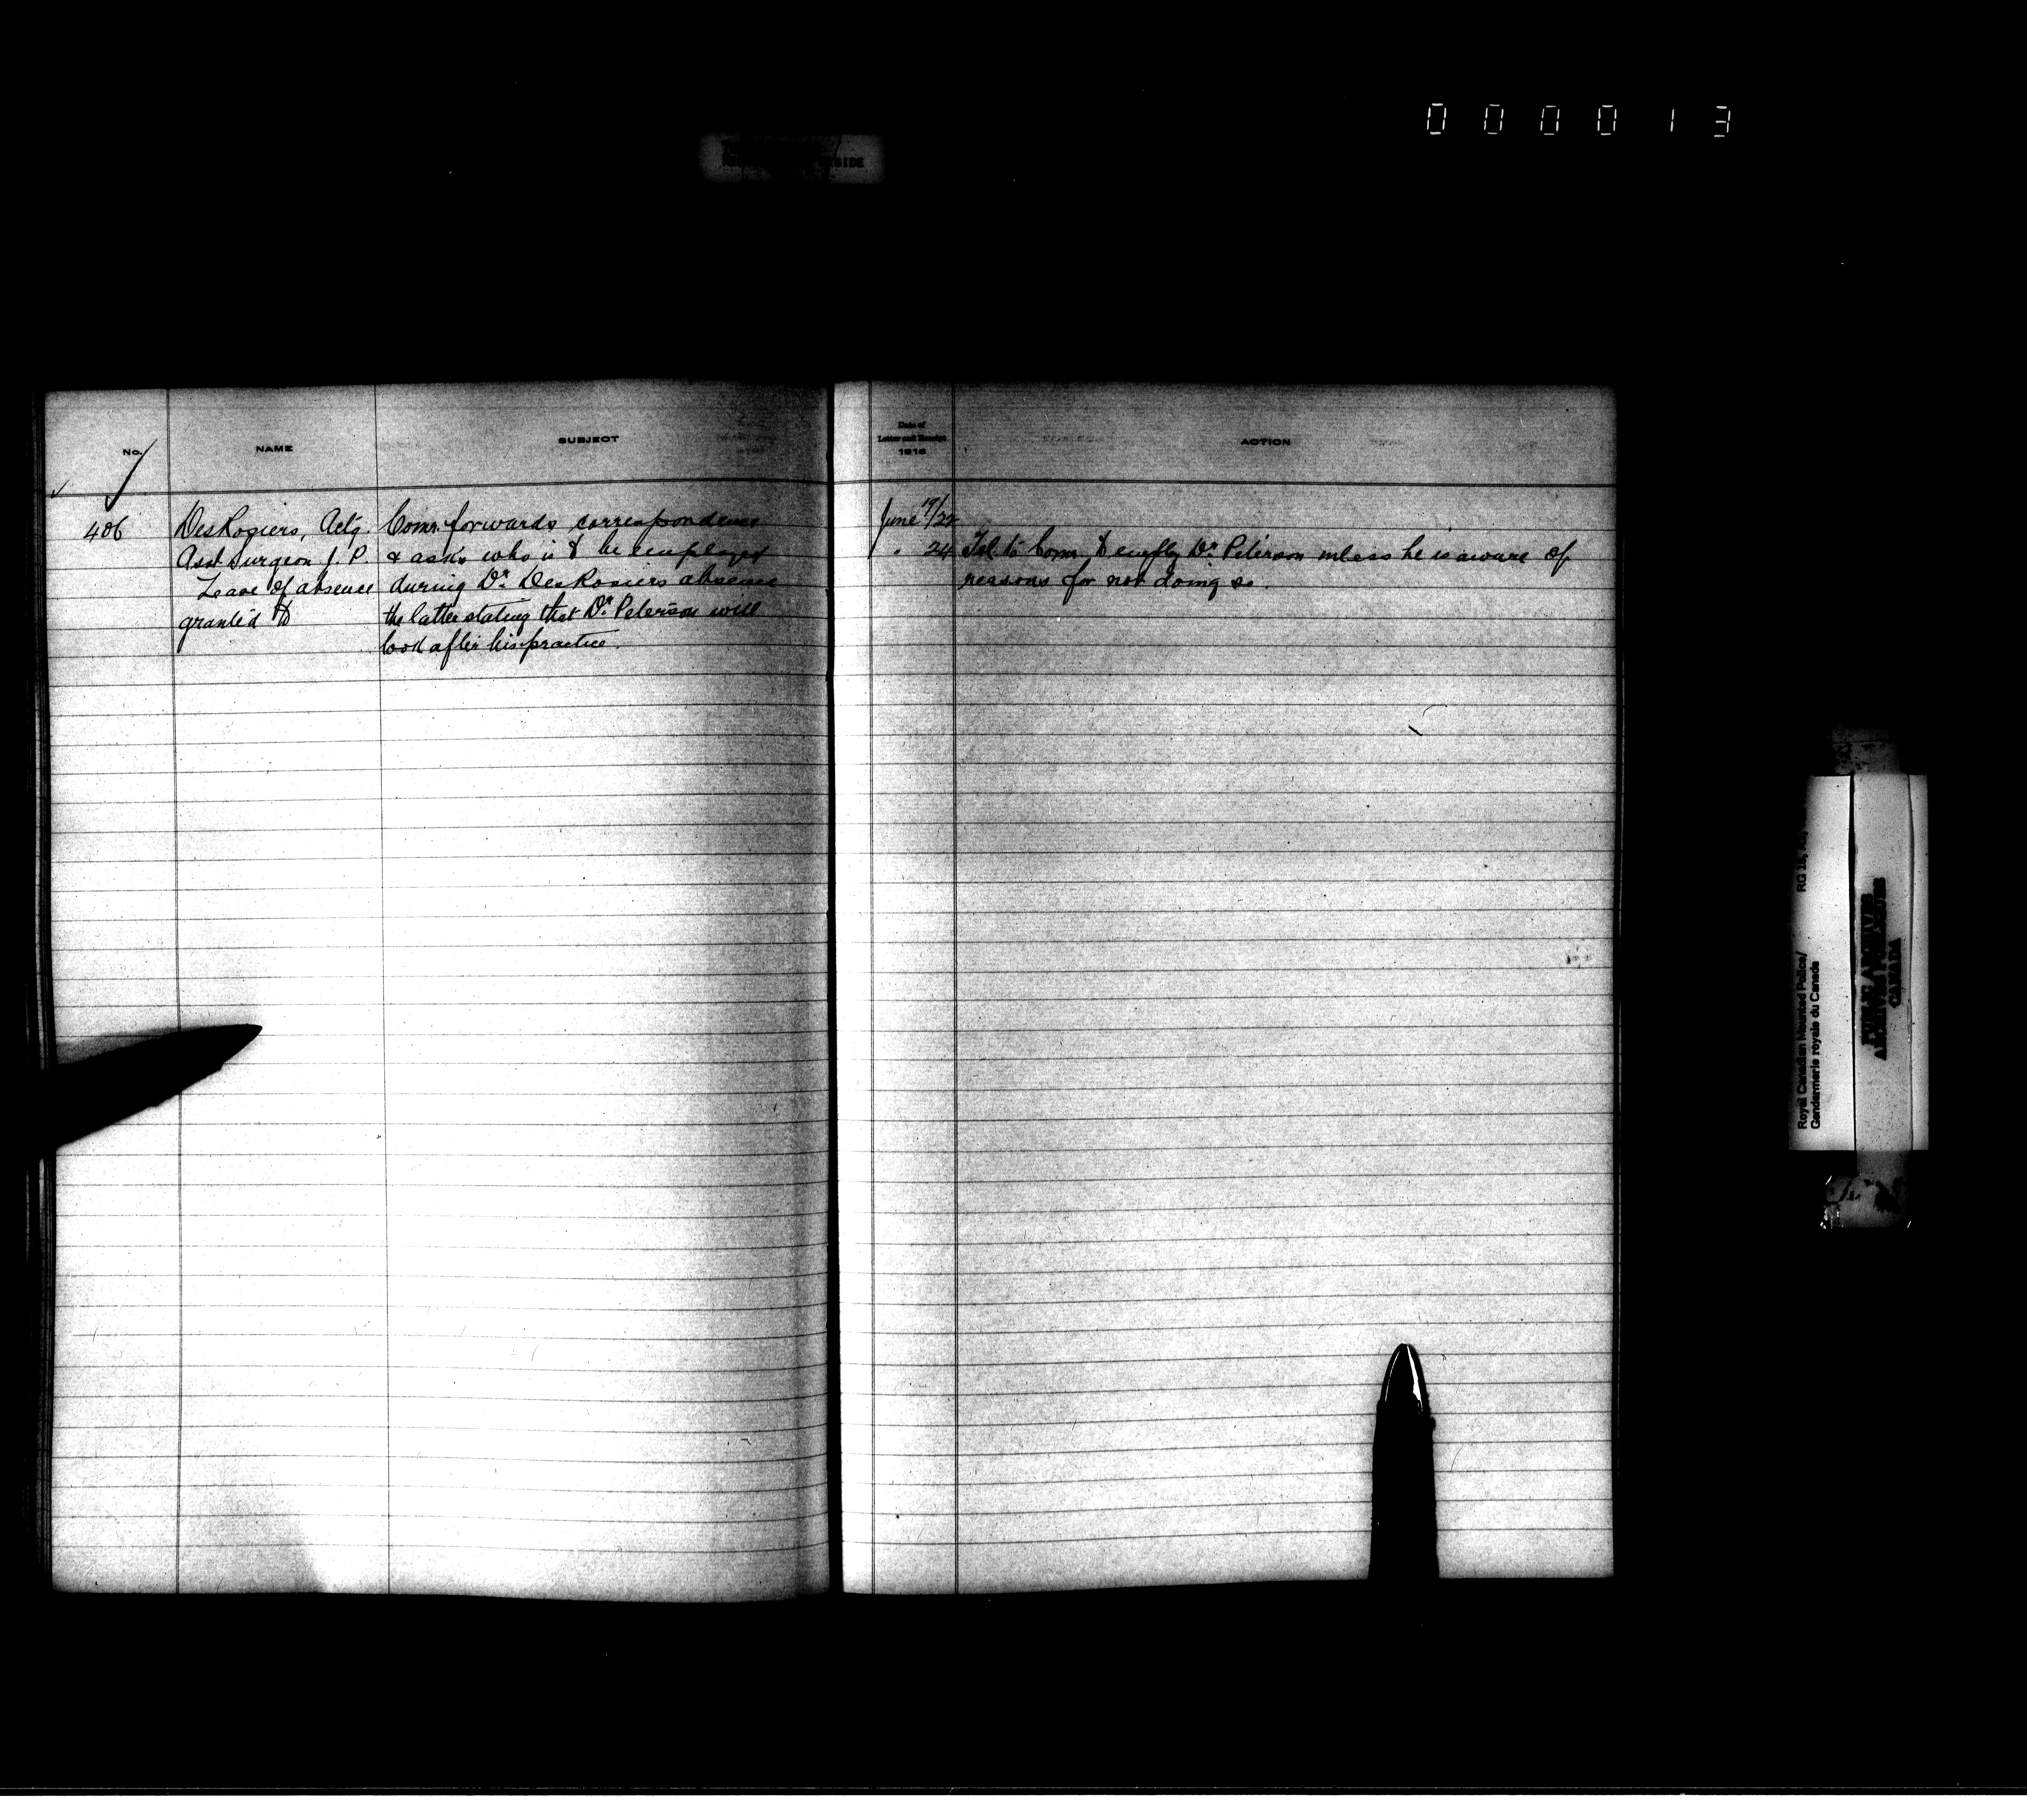 000013
SIDE
No.
NAME
SUBJECT
Date of
Letter and Receipt
1916
ACTION
406
DesRosiers, Actg.
Asst Surgeon J. P.
Leave of absence
granted to
Comr. forwards correspondence
& asks who is to be employed
during Dr. DesRosiers absence
the latter stating that Dr. Peterson will
look after his practice.
June 19/22
" 24
Tel. to Comr. to employ Dr. Peterson unless he is aware of
reasons for not doing so.
Royal Canadian Mounted Police/
Gendarmerie royale du Canada
RG 18,
PUBLIC ARCHIVES
ARCHIVES PUBLIQUES
CANADA